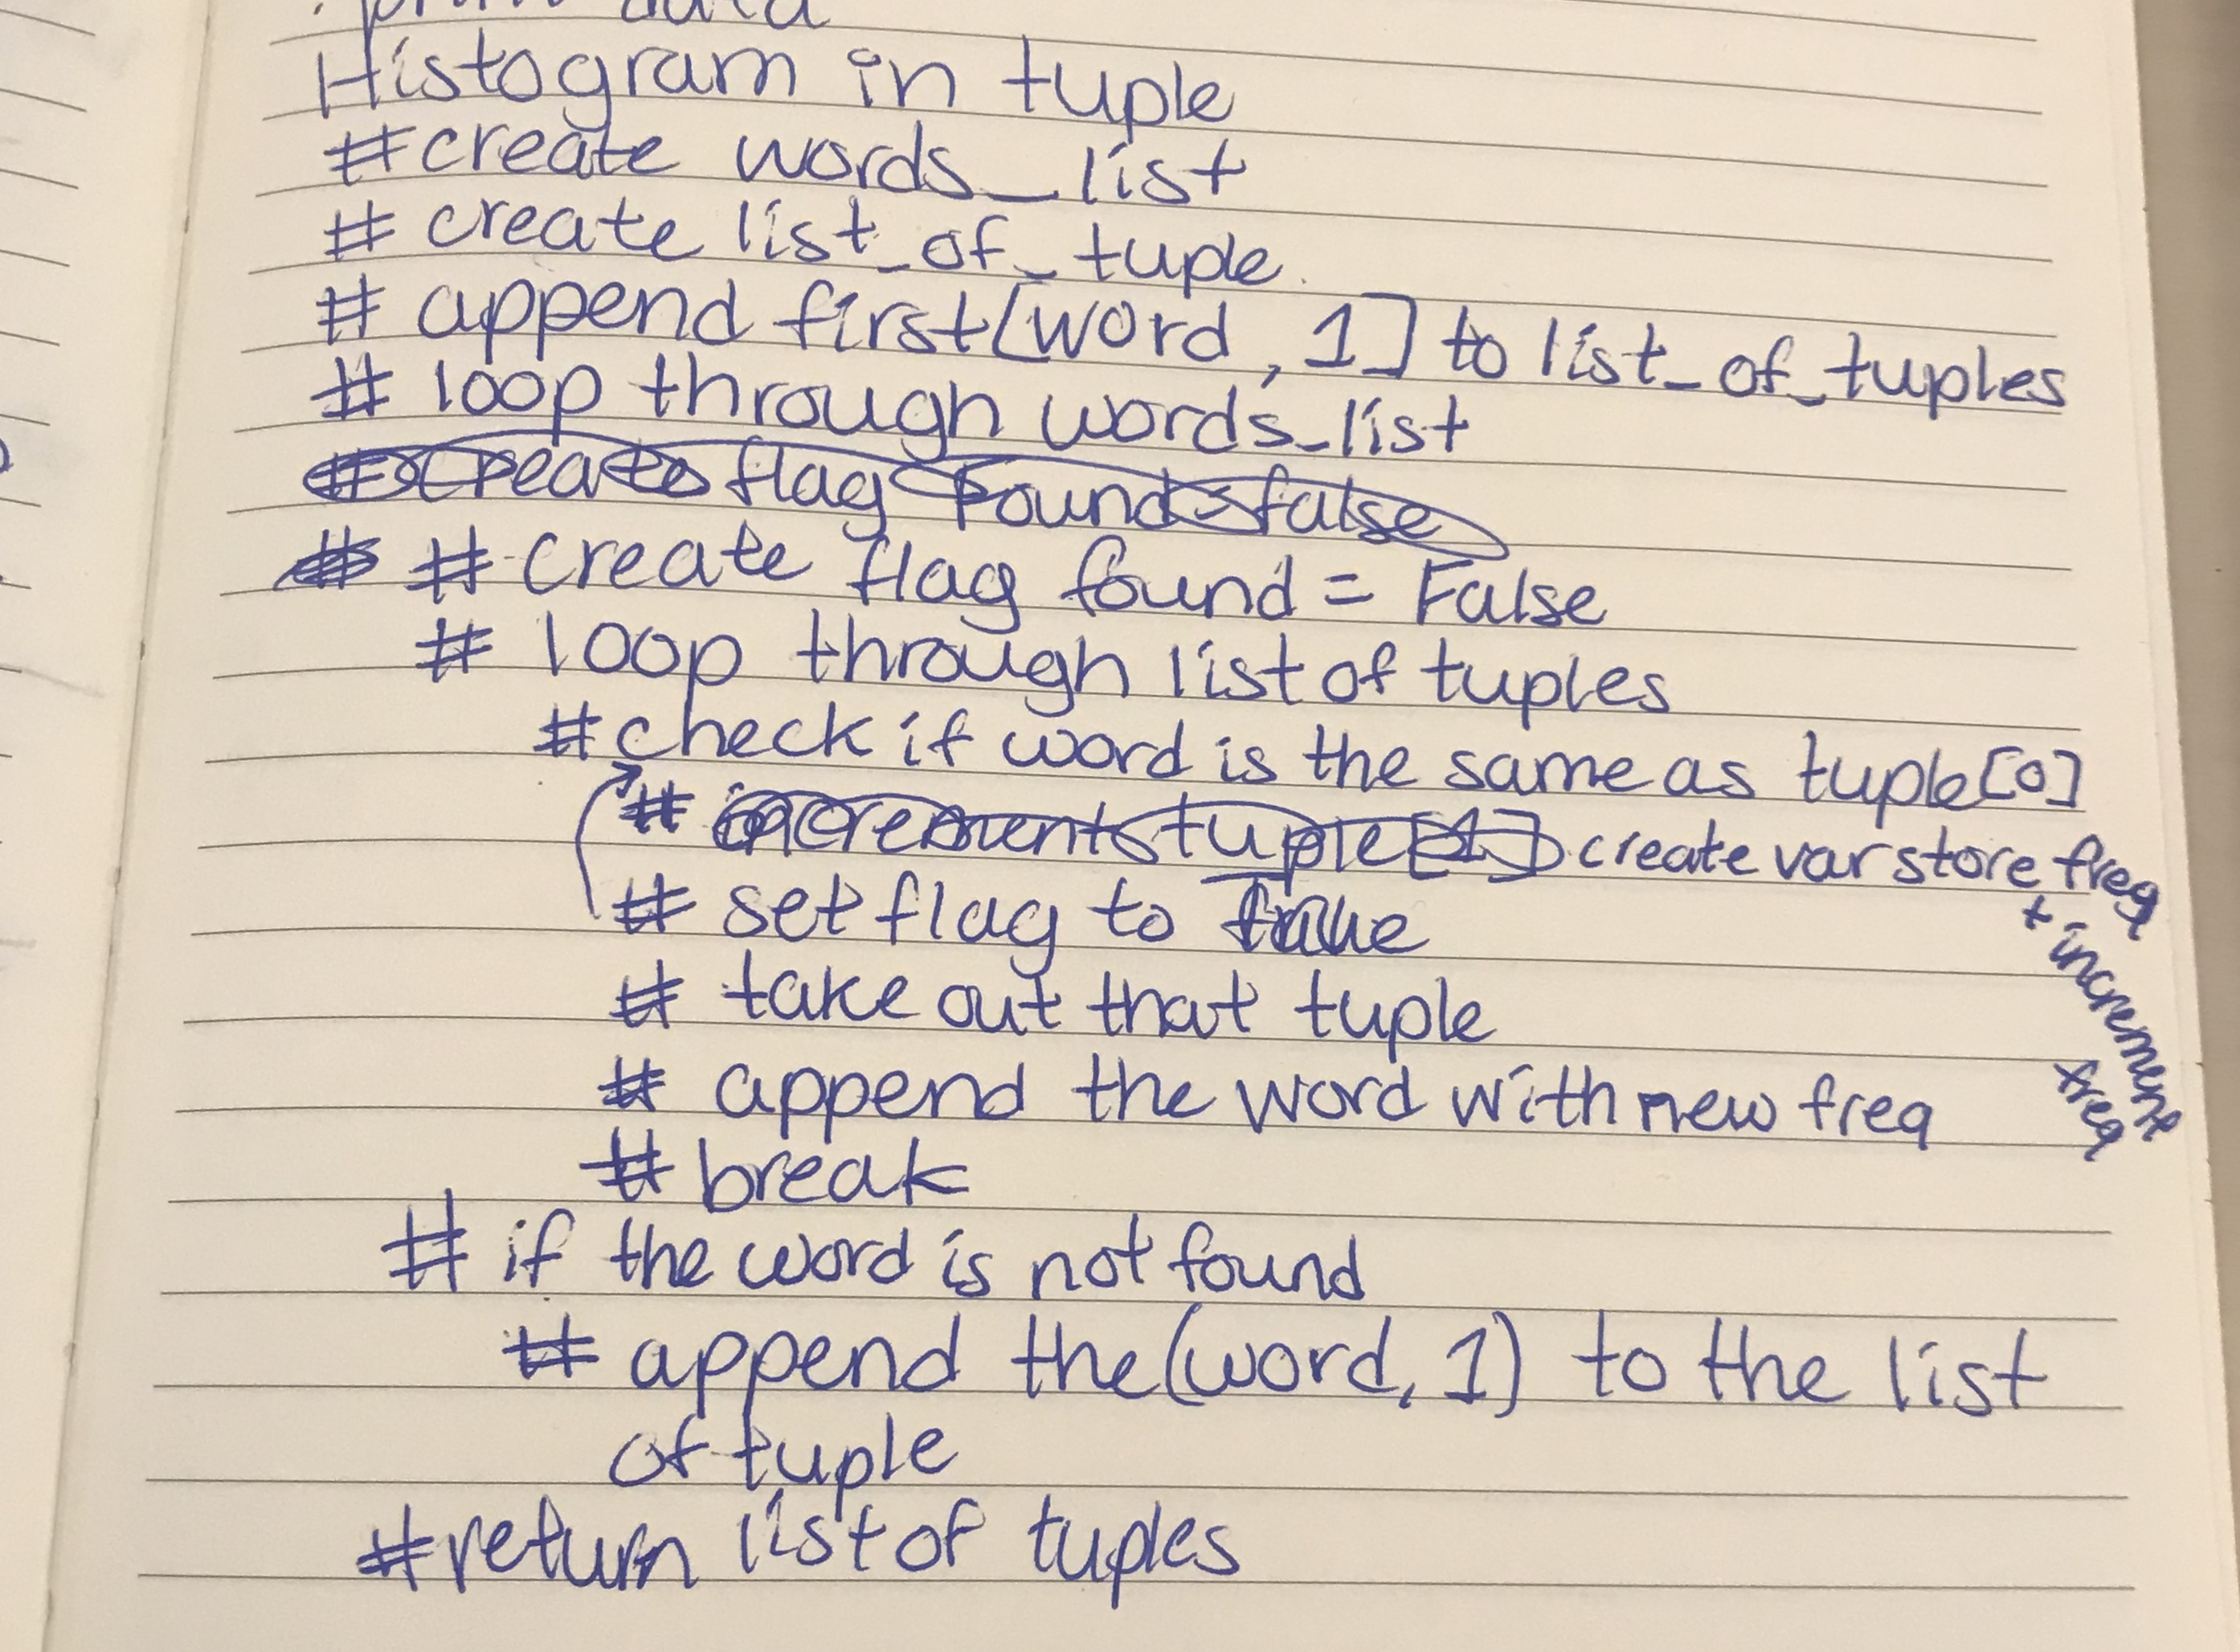 print data
Histogram in tuple
#create words_list
# create list_of_tuple
# append first[word, 1] to list_of_tuples
# loop through words_list
#create flag found=false
# # create flag found = False
# loop through list of tuples
#check if word is the same as tuple[0]
# increment tuple[1] create var store freq
+ increment
freq
# set flag to True
# take out that tuple
# append the word with new freq
# break
# if the word is not found
# append the(word, 1) to the list
of tuple
#return list of tuples